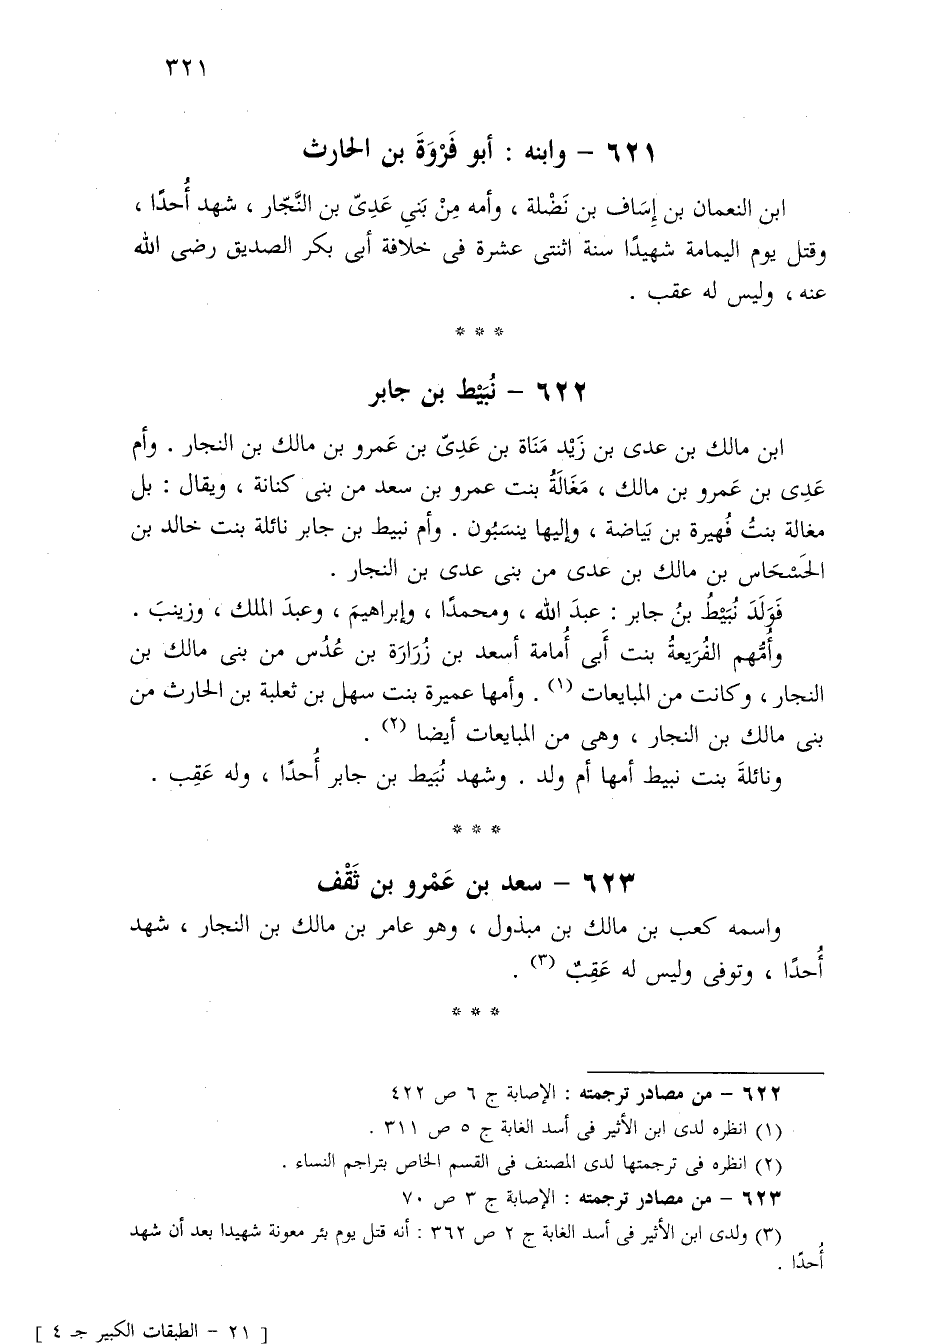 ٣٢١
٦٢١ – وابنه : أبو فَرْوَةَ بن الحارث
ابن النعمان بن إِسَاف بن نَضْلة ، وأمه مِنْ بَنِي عَدِىّ بن النَّجّار ، شهد أُحدًا ،
وقتل يوم اليمامة شهيدًا سنة اثنتى عشرة فى خلافة أبى بكر الصديق رضى الله
عنه ، وليس له عقب .
* * *
٦٢٢ – نُبَيْط بن جابر
ابن مالك بن عدى بن زَيْد مَنَاة بن عَدِىّ بن عَمرو بن مالك بن النجار . وأم
عَدِى بن عَمرو بن مالك ، مَغَالَةُ بنت عمرو بن سعد من بنى كنانة ، ويقال : بل
مغالة بنتُ فُهيرة بن بَياضة ، وإليها ينسَبُون . وأم نبيط بن جابر نائلة بنت خالد بن
الحَسْحَاس بن مالك بن عدى من بنى عدى بن النجار .
فَوَلَدَ نُبَيْطُ بنُ جابر : عبدَ الله ، ومحمدًا ، وإبراهيمَ ، وعبدَ الملك ، وزينبَ .
وأُمُّهم الفُرَيعةُ بنت أَبى أُمامة أسعد بن زُرَارَة بن عُدُس من بنى مالك بن
النجار ، وكانت من المبايعات (١) . وأمها عميرة بنت سهل بن ثعلبة بن الحارث من
بنى مالك بن النجار ، وهى من المبايعات أيضا (٢) .
ونائلةَ بنت نبيط أمها أم ولد . وشهد نُبَيَط بن جابر أُحدًا ، وله عَقِب .
* * *
٦٢٣ – سعد بن عَمْرو بن ثَقْف
واسمه كعب بن مالك بن مبذول ، وهو عامر بن مالك بن النجار ، شهد
أُحدًا ، وتوفى وليس له عَقِبٌ (٣) .
* * *
٦٢٢ – من مصادر ترجمته : الإصابة ج ٦ ص ٤٢٢
(١) انظره لدى ابن الأثير فى أسد الغابة ج ٥ ص ٣١١ .
(٢) انظره فى ترجمتها لدى المصنف فى القسم الخاص بتراجم النساء .
٦٢٣ – من مصادر ترجمته : الإصابة ج ٣ ص ٧٠
(٣) ولدى ابن الأثير فى أسد الغابة ج ٢ ص ٣٦٢ : أنه قتل يوم بئر معونة شهيدا بعد أن شهد
أُحدًا .
[ ٢١ – الطبقات الكبير جـ ٤ ]